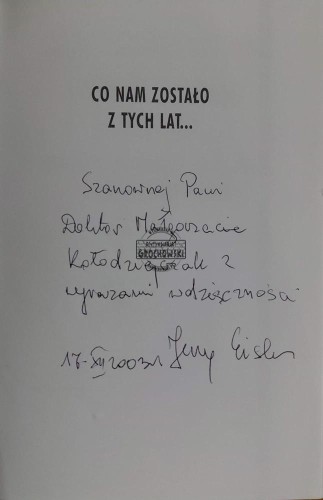 CO NAM ZOSTAŁO
Z TYCH LAT...
Szanownej Pani
Doktor Małgorzacie
GROCHOWSKI
Kołodziejczak z
wyrazami wdzięczności
17-XII 2003r Jerzy Eisler